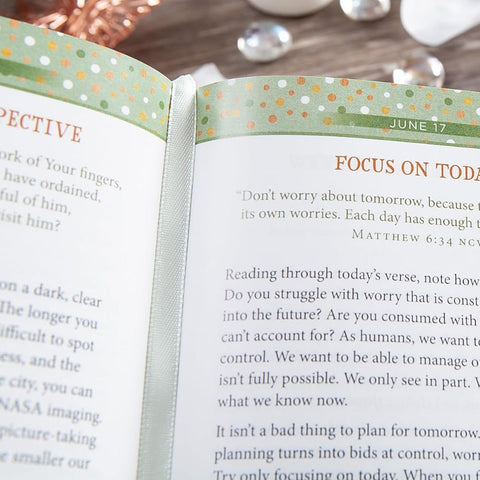 PECTIVE
ork of Your fingers,
have ordained,
ful of him,
isit him?
on a dark, clear
The longer you
ifficult to spot
ess, and the
e city, you can
NASA imaging.
picture-taking
e smaller our
JUNE 17
FOCUS ON TODA
“Don’t worry about tomorrow, because t
its own worries. Each day has enough t
MATTHEW 6:34 NCV
Reading through today’s verse, note how
Do you struggle with worry that is const
into the future? Are you consumed with
can’t account for? As humans, we want to
control. We want to be able to manage ou
isn’t fully possible. We only see in part. W
what we know now.
It isn’t a bad thing to plan for tomorrow.
planning turns into bids at control, worr
Try only focusing on today. When you f